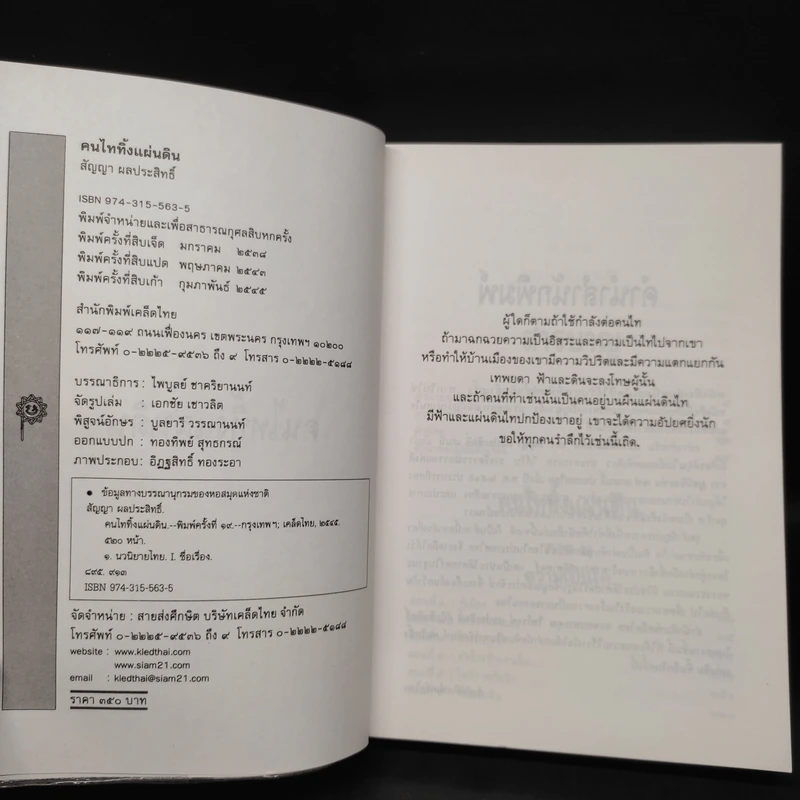 คนไททิ้งแผ่นดิน
สัญญา ผลประสิทธิ์
ISBN 974-315-563-5
พิมพ์จำหน่ายและเพื่อสาธารณกุศลสิบหกครั้ง
พิมพ์ครั้งที่สิบเจ็ด มกราคม ๒๕๓๘
พิมพ์ครั้งที่สิบแปด พฤษภาคม ๒๕๔๓
พิมพ์ครั้งที่สิบเก้า กุมภาพันธ์ ๒๕๔๕
สำนักพิมพ์เคล็ดไทย
๑๑๗-๑๑๙ ถนนเฟื่องนคร เขตพระนคร กรุงเทพฯ ๑๐๒๐๐
โทรศัพท์ ๐-๒๒๒๕-๙๕๓๖ ถึง ๙ โทรสาร ๐-๒๒๒๒-๕๑๘๘
บรรณาธิการ : ไพบูลย์ ชาคริยานนท์
จัดรูปเล่ม : เอกชัย เชาวลิต
พิสูจน์อักษร : บูลยารี วรรณานนท์
ออกแบบปก : ทองทิพย์ สุทธกรณ์
ภาพประกอบ : อิฏฐสิทธิ์ ทองระอา
● ข้อมูลทางบรรณานุกรมของหอสมุดแห่งชาติ
สัญญา ผลประสิทธิ์.
คนไททิ้งแผ่นดิน.--พิมพ์ครั้งที่ ๑๙.--กรุงเทพฯ; เคล็ดไทย, ๒๕๔๕.
๕๒๐ หน้า.
๑. นวนิยายไทย. I. ชื่อเรื่อง.
๘๙๕. ๙๑๓
ISBN 974-315-563-5
จัดจำหน่าย : สายส่งศึกษิต บริษัทเคล็ดไทย จำกัด
โทรศัพท์ ๐-๒๒๒๕-๙๕๓๖ ถึง ๙ โทรสาร ๐-๒๒๒๒-๕๑๘๘
website : www.kledthai.com
www.siam21.com
email : kledthai@siam21.com
ราคา ๓๕๐ บาท
ผู้ใดก็ตามถ้าใช้กำลังต่อคนไท
ถ้ามาฉกฉวยความเป็นอิสระและความเป็นไทไปจากเขา
หรือทำให้บ้านเมืองของเขามีความวิปริตและมีความแตกแยกกัน
เทพยดา ฟ้าและดินจะลงโทษผู้นั้น
และถ้าคนที่ทำเช่นนั้นเป็นคนอยู่บนผืนแผ่นดินไท
มีฟ้าและแผ่นดินไทปกป้องเขาอยู่ เขาจะได้ความอัปยศยิ่งนัก
ขอให้ทุกคนรำลึกไว้เช่นนี้เถิด.